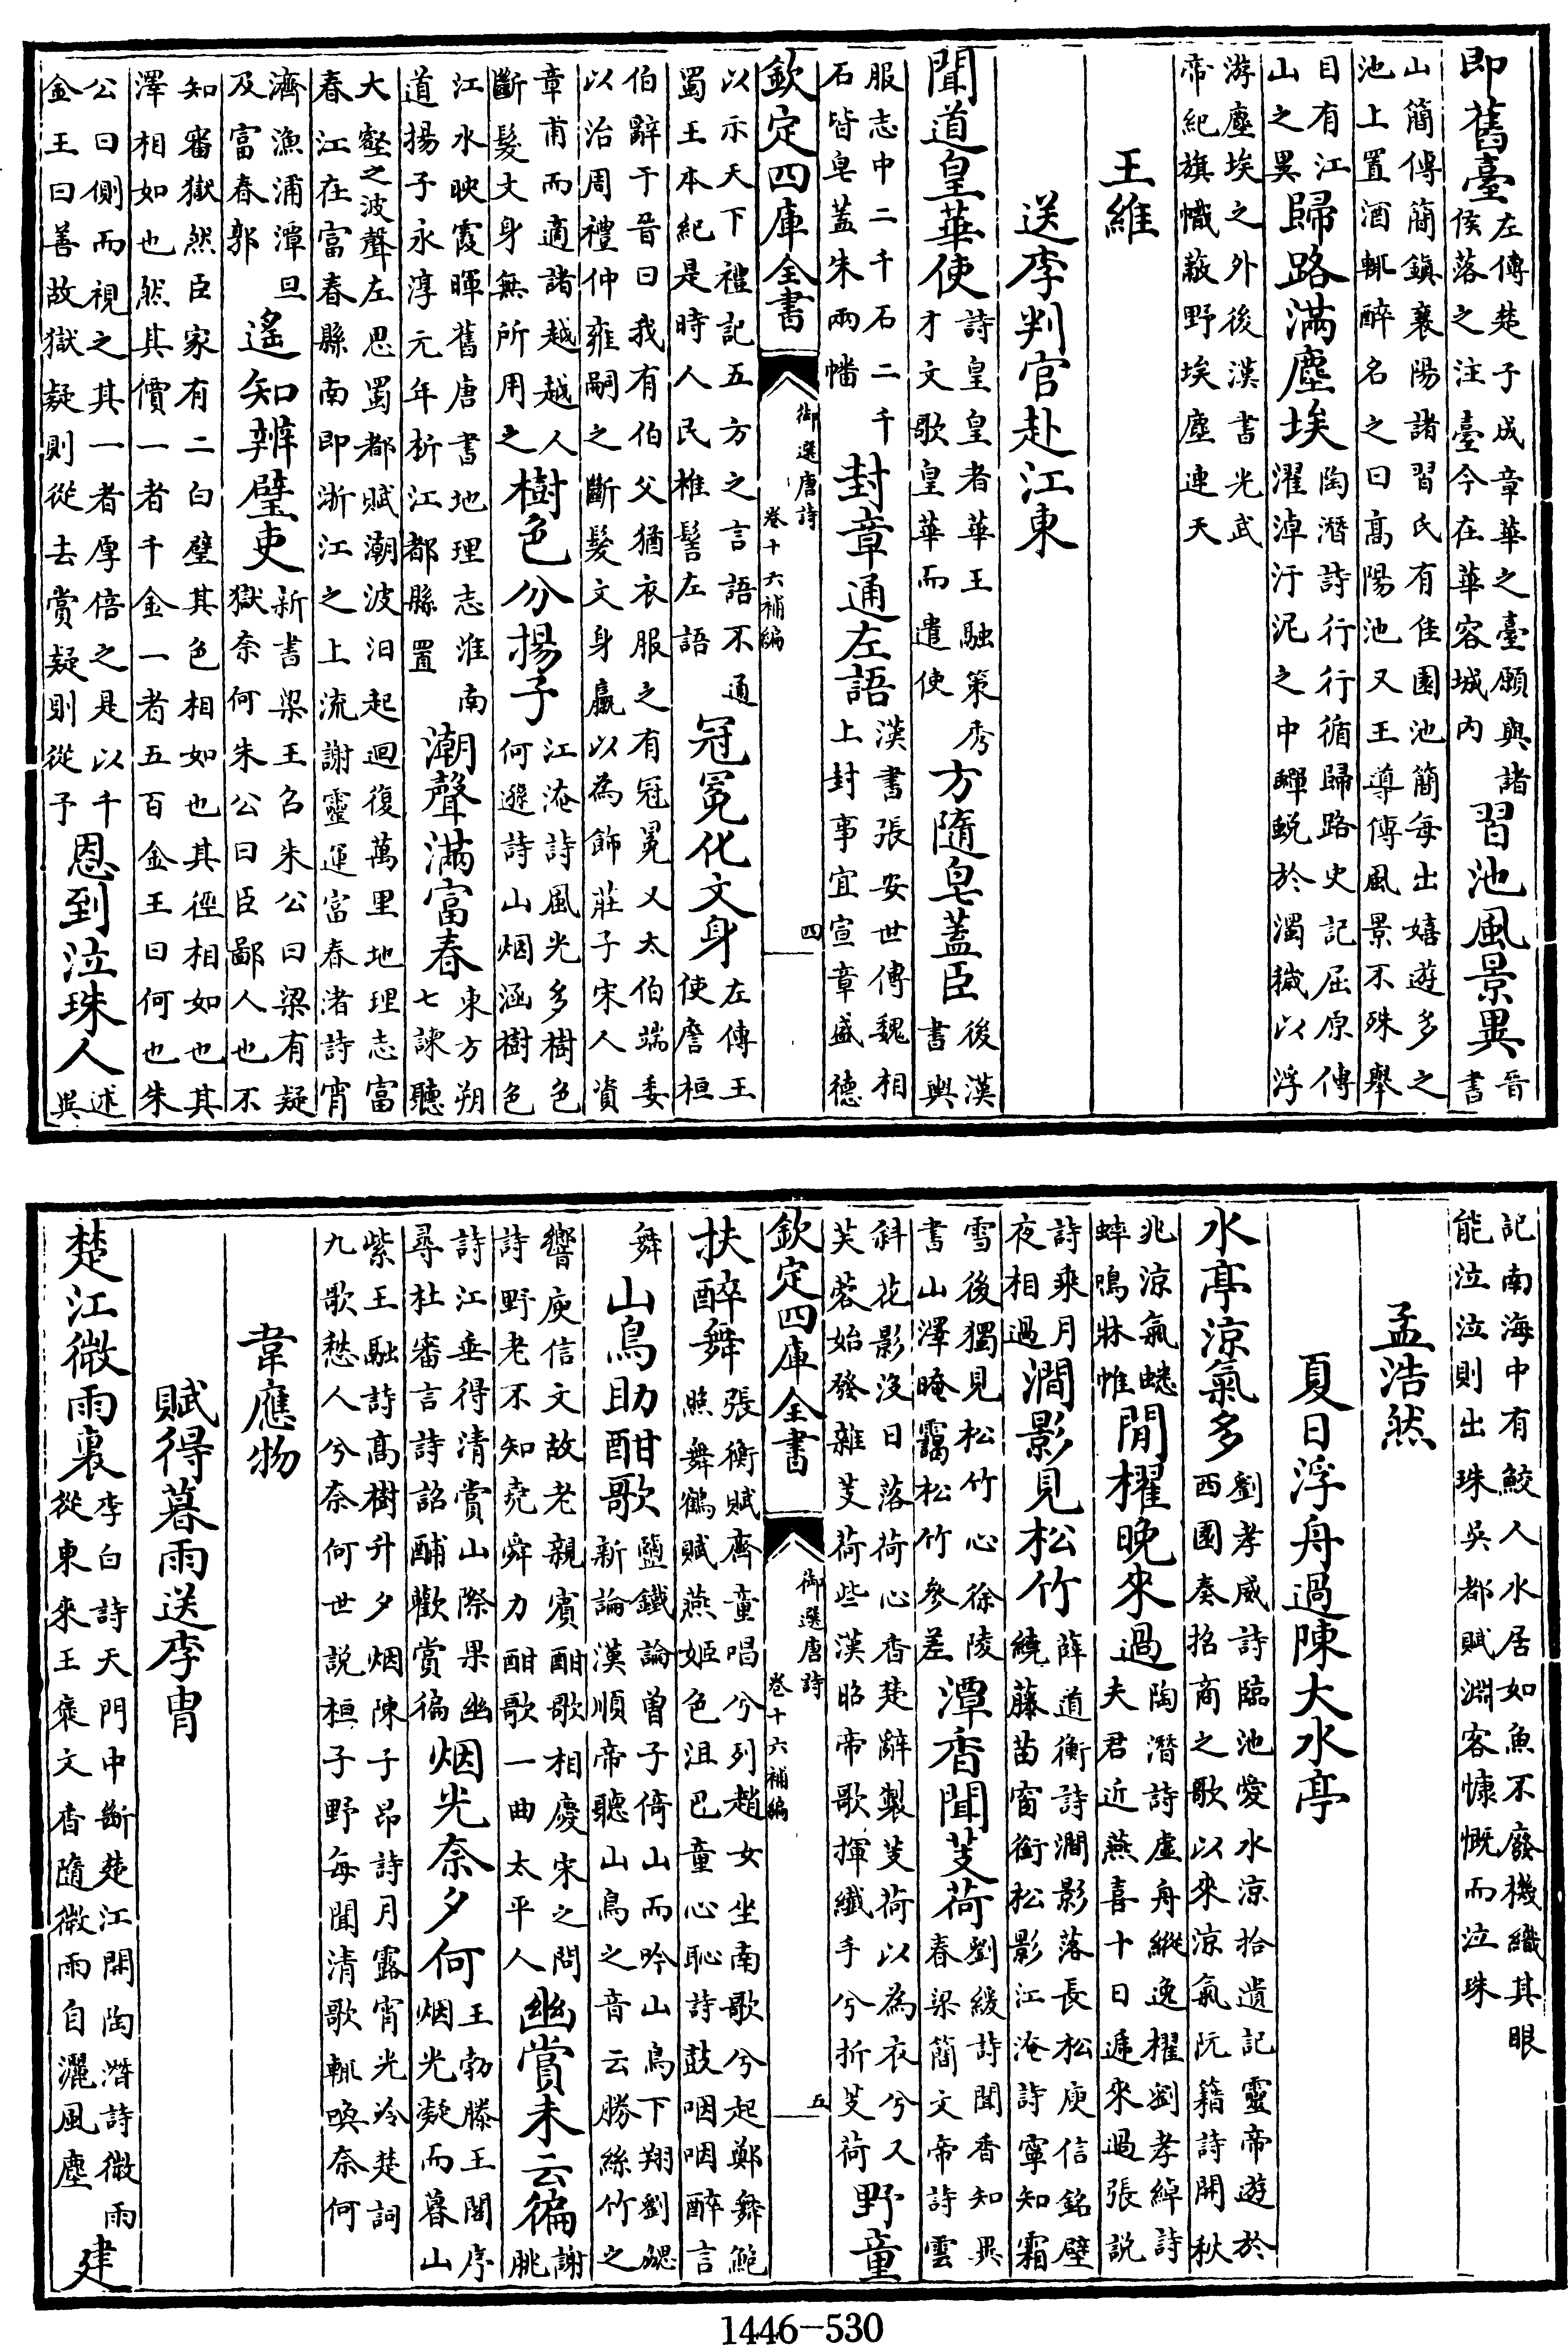 即舊臺左傳楚子成章華之臺願與諸侯落之注臺今在華容城内習池風景異晉書
山簡傳簡鎮襄陽諸習氏有佳園池簡每出嬉遊多之池上置酒輒醉名之曰髙陽池又王導傳風景不殊舉
目有江山之異歸路滿塵埃陶潛詩行行循歸路史記屈原傳濯淖汙泥之中蟬蛻於濁穢以浮
游塵埃之外後漢書光武帝紀旗幟蔽野埃塵連天
王維
送李判官赴江東
聞道皇華使詩皇皇者華王融策秀才文歌皇華而遣使方隨皂蓋臣後漢書輿
服志中二千石二千石皆皂蓋朱兩幡封章通左語漢書張安世傳魏相上封事宜宣章盛德
欽定四庫全書
御選唐詩
卷十六補編
四
以示天下禮記五方之言語不通蜀王本紀是時人民椎髻左語冠冕化文身左傳王使詹桓
伯辭于晉曰我有伯父猶衣服之有冠冕又太伯端委以治周禮仲雍嗣之斷髮文身臝以為飾莊子宋人資
章甫而適諸越越人斷髮文身無所用之樹色分揚子江淹詩風光多樹色何遜詩山烟涵樹色
江水映霞暉舊唐書地理志淮南道揚子永淳元年析江都縣置潮聲滿富春東方朔七諫聽
大壑之波聲左思蜀都賦潮波汨起迴復萬里地理志富春江在富春縣南即浙江之上流謝靈運富春渚詩宵
濟漁浦潭旦及富春郭遙知辨璧吏新書梁王召朱公曰梁有疑獄奈何朱公曰臣鄙人也不
知審獄然臣家有二白璧其色相如也其徑相如也其澤相如也然其價一者千金一者五百金王曰何也朱
公曰側而視之其一者厚倍之是以千金王曰善故獄疑則從去賞疑則從予恩到泣珠人述異
記南海中有鮫人水居如魚不廢機織其眼能泣泣則出珠吳都賦淵客慷慨而泣珠
孟浩然
夏日浮舟過陳大水亭
水亭涼氣多劉孝威詩臨池愛水涼拾遺記靈帝遊於西園奏招商之歌以來涼氣阮籍詩開秋
兆涼氣蟋蟀鳴牀帷閒櫂晚來過陶潛詩虛舟縱逸櫂劉孝綽詩夫君近燕喜十日遞來過張説
詩乘月夜相過澗影見松竹薛道衡詩澗影落長松庾信銘壁繞藤苗窗銜松影江淹詩寧知霜
雪後獨見松竹心徐陵書山澤晻靄松竹參差潭香聞芰荷劉緩詩聞香知異春梁簡文帝詩雲
斜花影沒日落荷心香楚辭製芰荷以為衣兮又芙蓉始發雜芰荷些漢昭帝歌揮纖手兮折芰荷野童
欽定四庫全書
御選唐詩
卷十六補編
五
扶醉舞張衡賦齊童唱兮列趙女坐南歌兮起鄭舞鮑照舞鶴賦燕姬色沮巴童心恥詩鼓咽咽醉言
舞山鳥助酣歌鹽鐵論曾子倚山而吟山鳥下翔劉勰新論漢順帝聽山鳥之音云勝絲竹之
響庾信文故老親賓酣歌相慶宋之問詩野老不知堯舜力酣歌一曲太平人幽賞未云徧謝朓
詩江垂得清賞山際果幽尋杜審言詩詔酺歡賞徧烟光奈夕何王勃滕王閣序烟光凝而暮山
紫王融詩髙樹升夕烟陳子昂詩月露宵光冷楚詞九歌愁人兮奈何世説桓子野每聞清歌輒喚奈何
韋應物
賦得暮雨送李冑
楚江微雨裏李白詩天門中斷楚江開陶潛詩微雨從東來王褒文香隨微雨自灑風塵建
1446-530